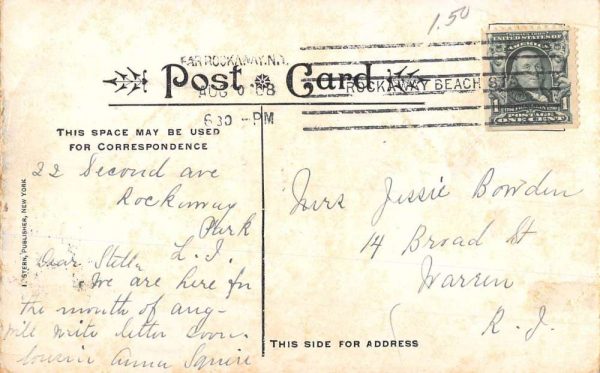 1.50
FAR ROCKAWAY, N.Y.
AUG
630 -PM
ROCKAWAY BEACH
UNITED STATES OF
POSTAGE
ONE CENT
Post Card
THIS SPACE MAY BE USED
FOR CORRESPONDENCE
22 Second ave
Rockaway
Park
L. I.
Dear Stella
We are here for
the month of aug-
will write letter soon.
cousin Anna Squire
Mrs Jessie Bowden
14 Broad St
Warren
R. I.
I. STERN, PUBLISHER, NEW YORK
THIS SIDE FOR ADDRESS